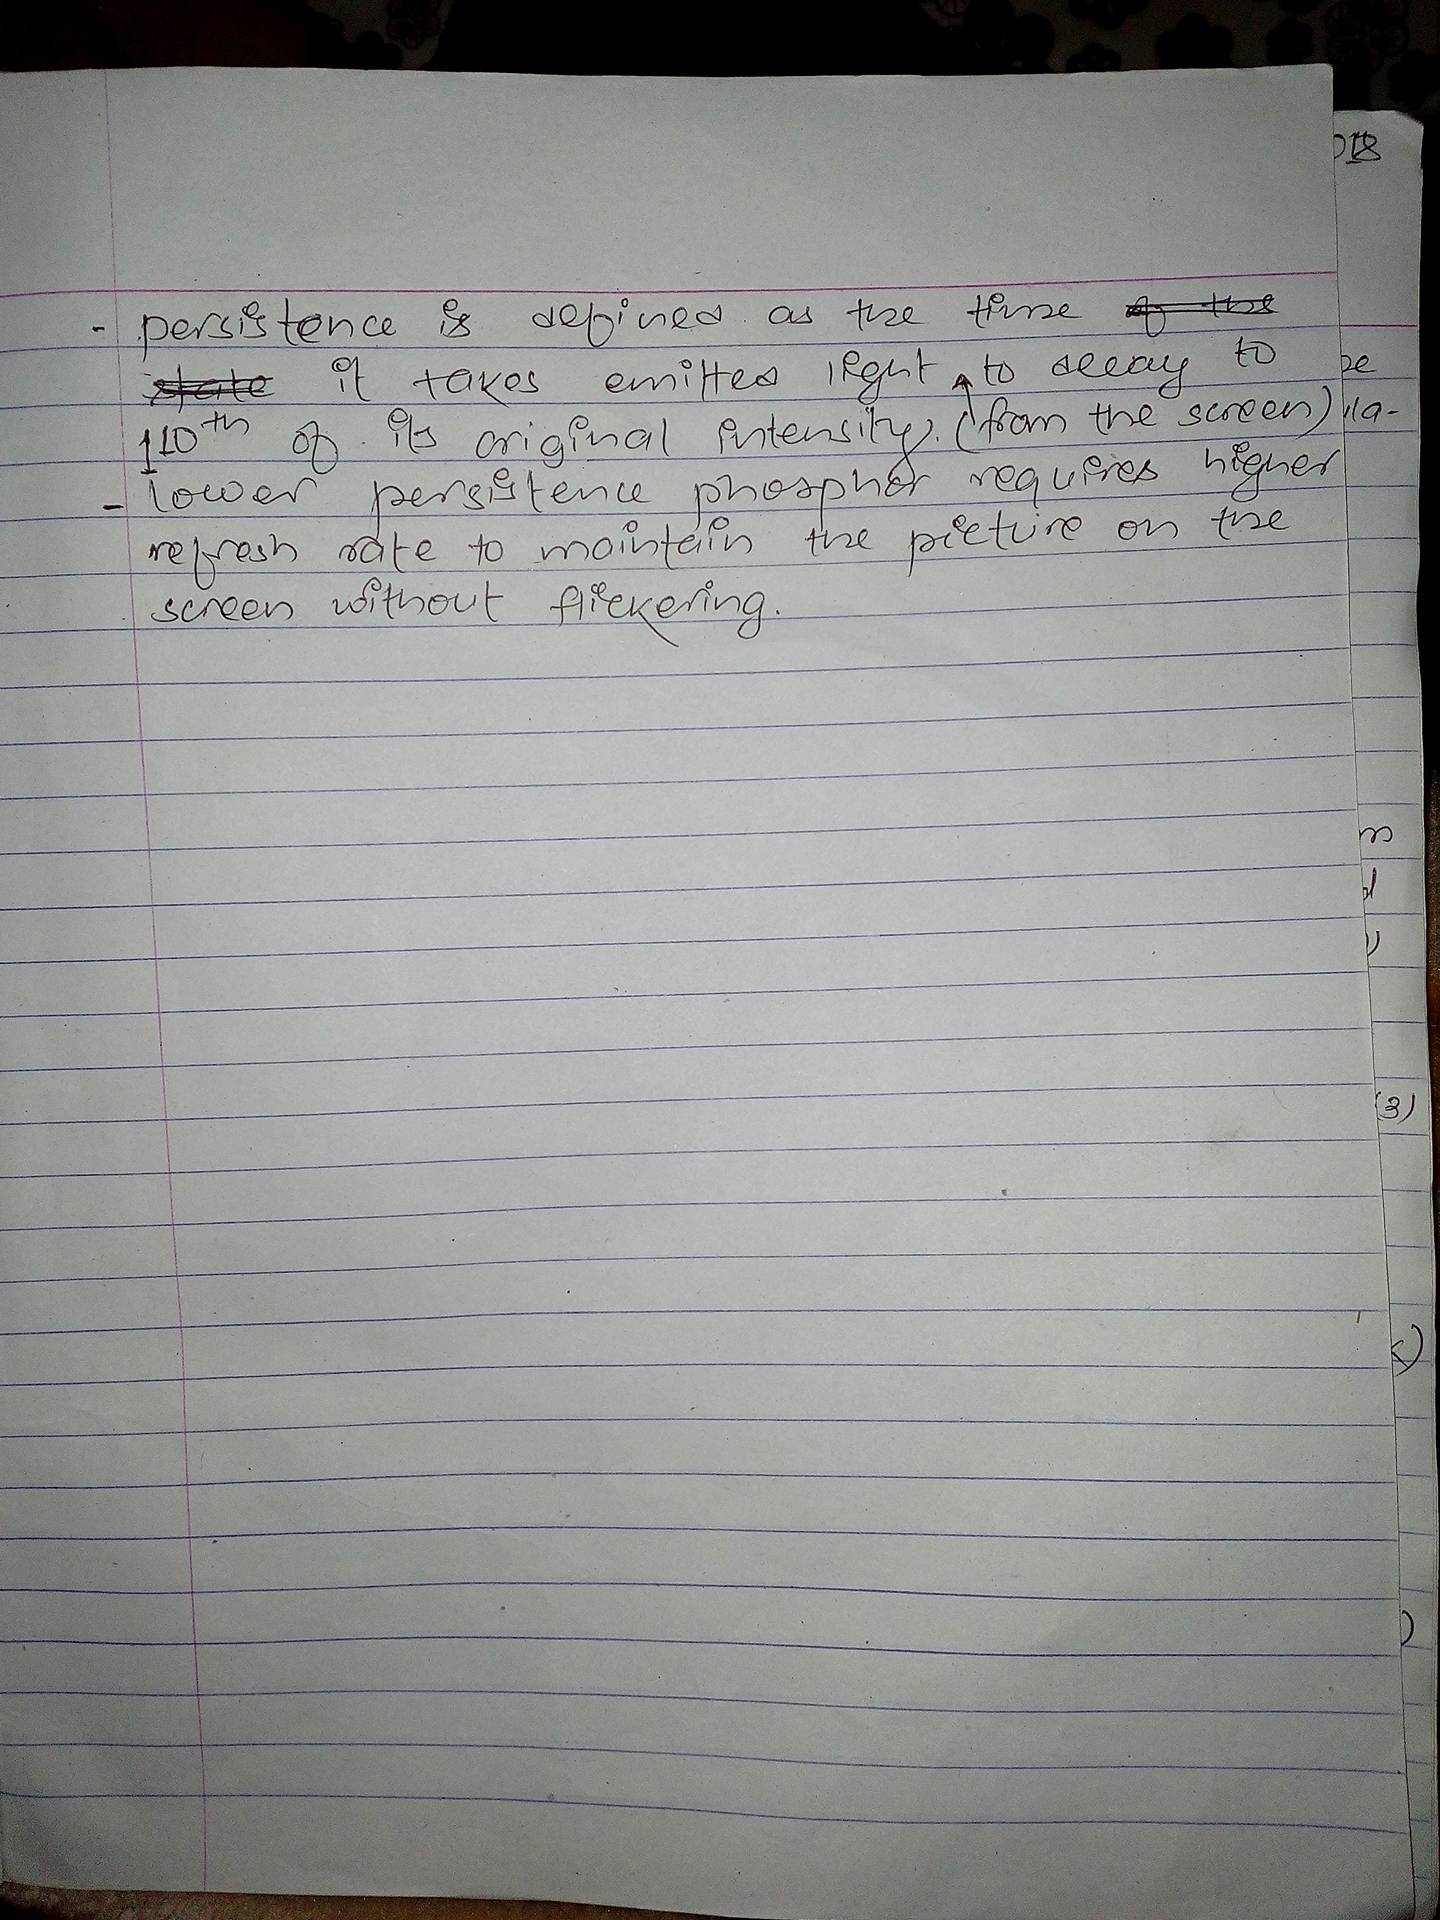 - persistence is defined as the time of the
state it takes emitted light to decay to
110th of its original intensity. (from the screen)
- lower persistence phosphor requires higher
refresh rate to maintain the picture on the
screen without flickering.
(3)